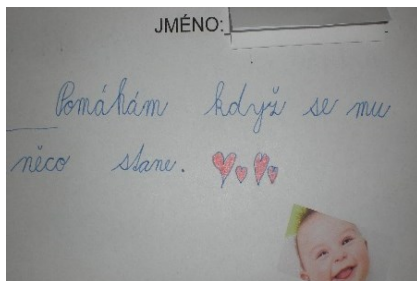 JMÉNO:
Pomáhám když se mu
něco stane.